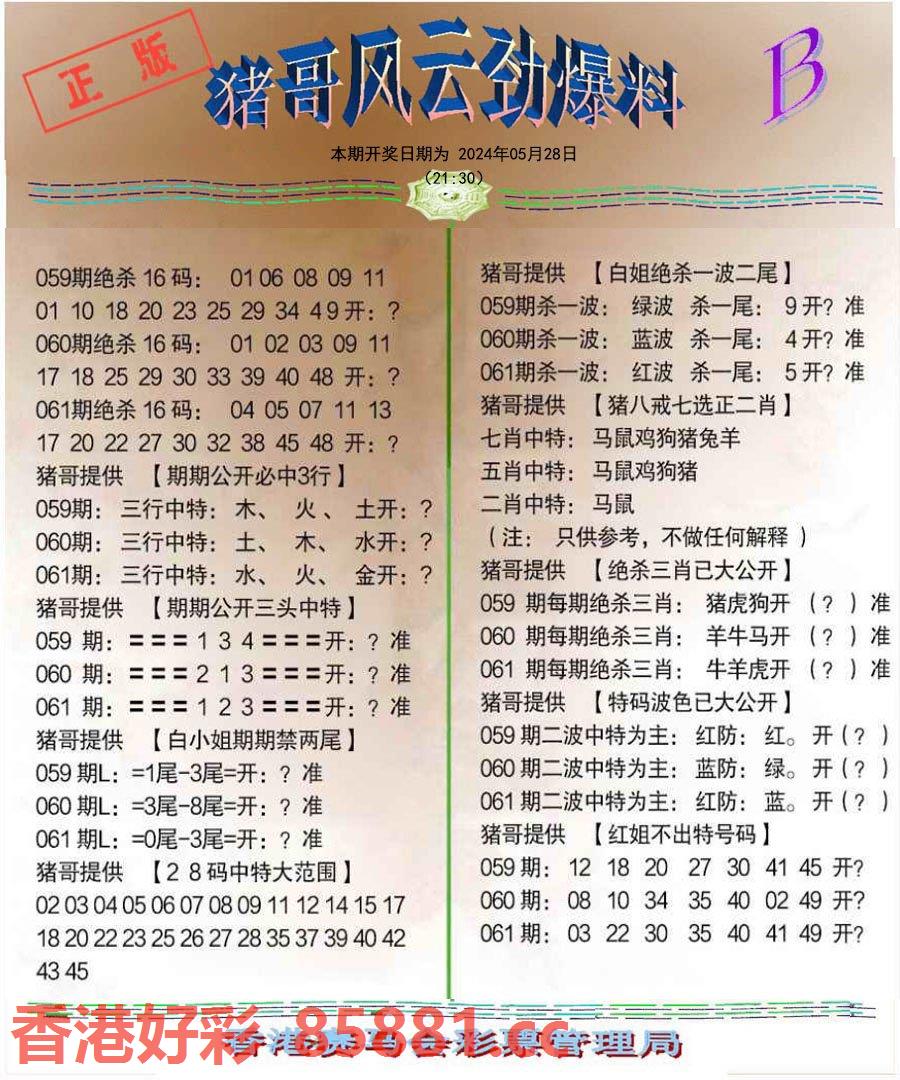 正版
猪哥风云劲爆料
B
本期开奖日期为 2024年05月28日
(21:30)
059期绝杀16码： 01 06 08 09 11
01 10 18 20 23 25 29 34 49开：?
060期绝杀16码： 01 02 03 09 11
17 18 25 29 30 33 39 40 48 开：?
061期绝杀16码： 04 05 07 11 13
17 20 22 27 30 32 38 45 48 开：?
猪哥提供 【期期公开必中3行】
059期：三行中特：木、 火 、 土开：?
060期：三行中特：土、 木、 水开：?
061期：三行中特：水、 火、 金开：?
猪哥提供 【期期公开三头中特】
059 期：===134===开：? 准
060 期：===213===开：? 准
061 期：===123===开：? 准
猪哥提供 【白小姐期期禁两尾】
059期L：=1尾-3尾=开：? 准
060期L：=3尾-8尾=开：? 准
061期L：=0尾-3尾=开：? 准
猪哥提供 【28码中特大范围】
02 03 04 05 06 07 08 09 11 12 14 15 17
18 20 22 23 25 26 27 28 35 37 39 40 42
43 45
猪哥提供 【白姐绝杀一波二尾】
059期杀一波： 绿波 杀一尾： 9开? 准
060期杀一波： 蓝波 杀一尾： 4开? 准
061期杀一波： 红波 杀一尾： 5开? 准
猪哥提供 【猪八戒七选正二肖】
七肖中特： 马鼠鸡狗猪兔羊
五肖中特： 马鼠鸡狗猪
二肖中特： 马鼠
（注： 只供参考，不做任何解释 ）
猪哥提供 【绝杀三肖已大公开】
059 期每期绝杀三肖： 猪虎狗开 （? ）准
060 期每期绝杀三肖： 羊牛马开 （? ）准
061 期每期绝杀三肖： 牛羊虎开 （? ）准
猪哥提供 【特码波色已大公开】
059期二波中特为主：红防：红。开(? )
060期二波中特为主：蓝防：绿。开(? )
061期二波中特为主：红防：蓝。开(? )
猪哥提供 【红姐不出特号码】
059期：12 18 20 27 30 41 45 开?
060期：08 10 34 35 40 02 49 开?
061期：03 22 30 35 40 41 49 开?
香港好彩 85881.cc
香港赛马会彩票管理局